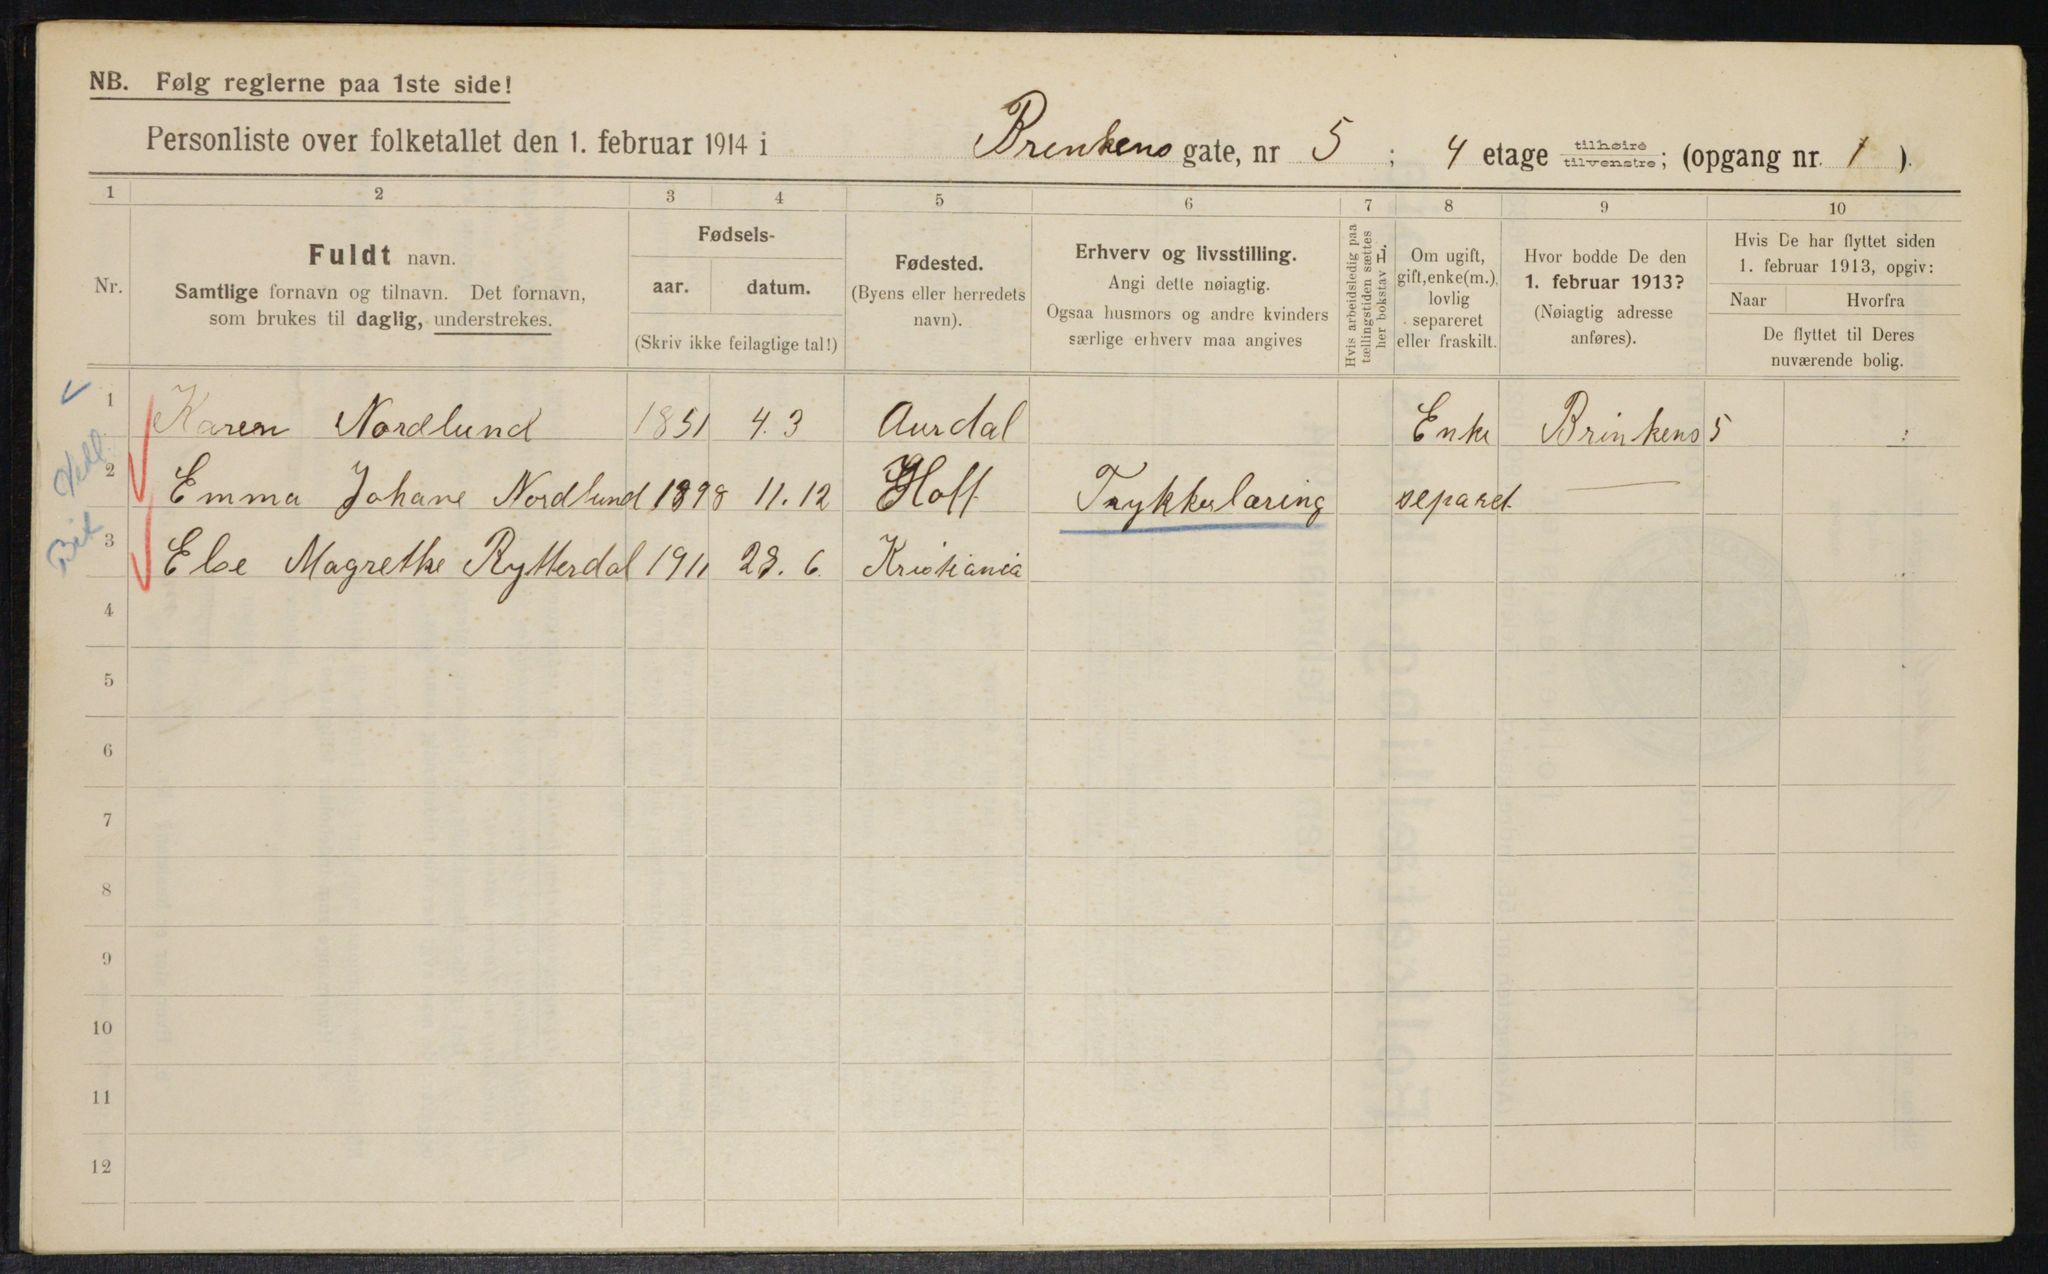 NB. Følg reglerne paa 1ste side!
Personliste over folketallet den 1. februar 1914 i Brenkens gate, nr 5 ; 4 etage tilhøire tilvenstre; (opgang nr. 1 ).
1 2 3 4 5 6 7 8 9 10
Nr.
Fuldt navn.
Samtlige fornavn og tilnavn. Det fornavn,
som brukes til daglig, understrekes.
Fødsels-
aar. datum.
(Skriv ikke feilagtige tal!)
Fødested.
(Byens eller herredets
navn).
Erhverv og livsstilling.
Angi dette nøiagtig.
Ogsaa husmors og andre kvinders
særlige erhverv maa angives
Hvis arbeidsledig paa
tællingstiden sættes
her bokstav L.
Om ugift,
gift, enke(m.),
lovlig
separeret
eller fraskilt.
Hvor bodde De den
1. februar 1913?
(Nøiagtig adresse
anføres).
Hvis De har flyttet siden
1. februar 1913, opgiv:
Naar Hvorfra
De flyttet til Deres
nuværende bolig.
1 Karen Nordlund 1851 4.3 Aurdal Enke Brinkens 5
2 Emma Johane Nordlund 1898 11.12 Hoff Trykkerlæring separet —
3 Else Magrethe Rytterdal 1911 28.6. Kristiania
4
5
6
7
8
9
10
11
12